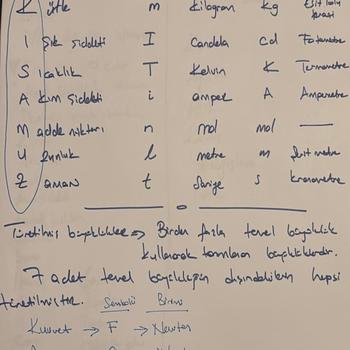 Kütle m kilogram kg Eşit kollu terazi
Işık Şiddeti I Candela cd Fotometre
Sıcaklık T Kelvin K Termometre
Akım Şiddeti i amper A Ampermetre
Madde miktarı n mol mol —
Uzunluk l metre m Şerit metre
Zaman t Saniye s Kronometre
Türetilmiş büyüklükler => Birden fazla temel büyüklük
kullanılarak tanımlanan büyüklüklerdir.
7 adet temel büyüklüğün dışındakilerin hepsi
türetilmiştir. Sembolü Birimi
Kuvvet → F → Newton